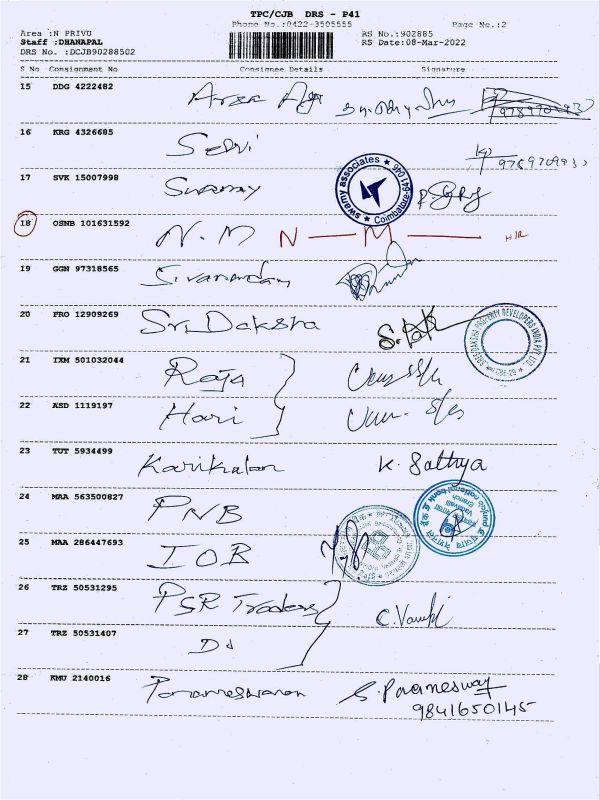 TPC/CJB DRS - P41
Phone No.:0422-3505555 Page No.:2
Area :N PRIVU RS No.:902885
Staff :DHANAPAL RS Date:08-Mar-2022
DRS No. :DCJB90288502
S No Consignment No Consignee Details Signature
15 DDG 4222482
16 KRG 4326685 Selvi
17 SVK 15007998 Swamy
swamy associates Coimbatore-641 046
18 OSNB 101631592 N.M N M
19 GGN 97318565 Sivanandam
20 FRO 12909269 Sri Daksha
21 IXM 501032044 Raja
22 ASD 1119197 Hari
23 TUT 5934499 Karikalan K. Sathya
24 MAA 563500827 PNB
25 MAA 286447693 IOB
26 TRZ 50531295 PSR Traders
27 TRZ 50531407
28 KMU 2140016 Parameswaran S. Parameswary
9841650145